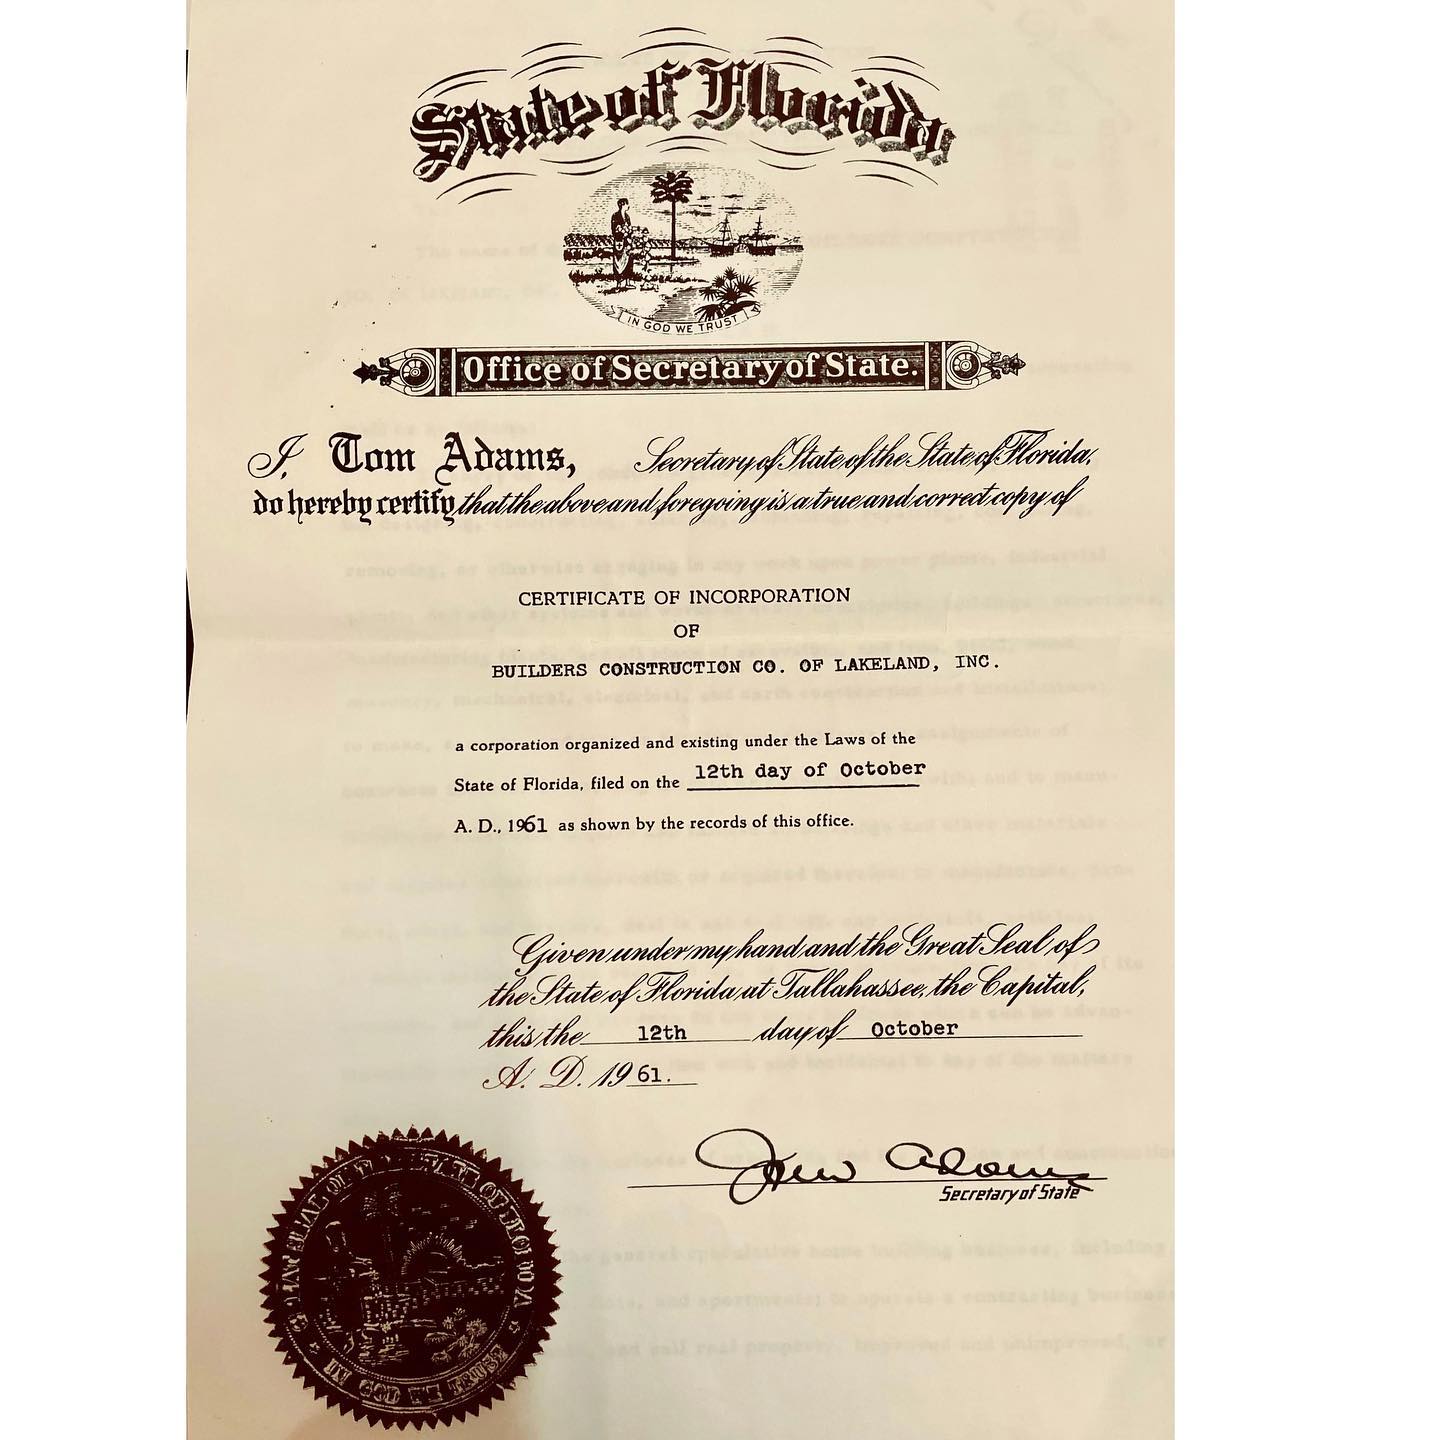 State of Florida
IN GOD WE TRUST
Office of Secretary of State.
I, Tom Adams, Secretary of State of the State of Florida,
do hereby certify that the above and foregoing is a true and correct copy of
CERTIFICATE OF INCORPORATION
OF
BUILDERS CONSTRUCTION CO. OF LAKELAND, INC.
a corporation organized and existing under the Laws of the
State of Florida, filed on the 12th day of October
A. D., 1961 as shown by the records of this office.
Given under my hand and the Great Seal of
the State of Florida at Tallahassee, the Capital,
this the 12th day of October
A. D. 1961.
Tom Adams
Secretary of State
GREAT SEAL OF THE STATE OF FLORIDA
IN GOD WE TRUST